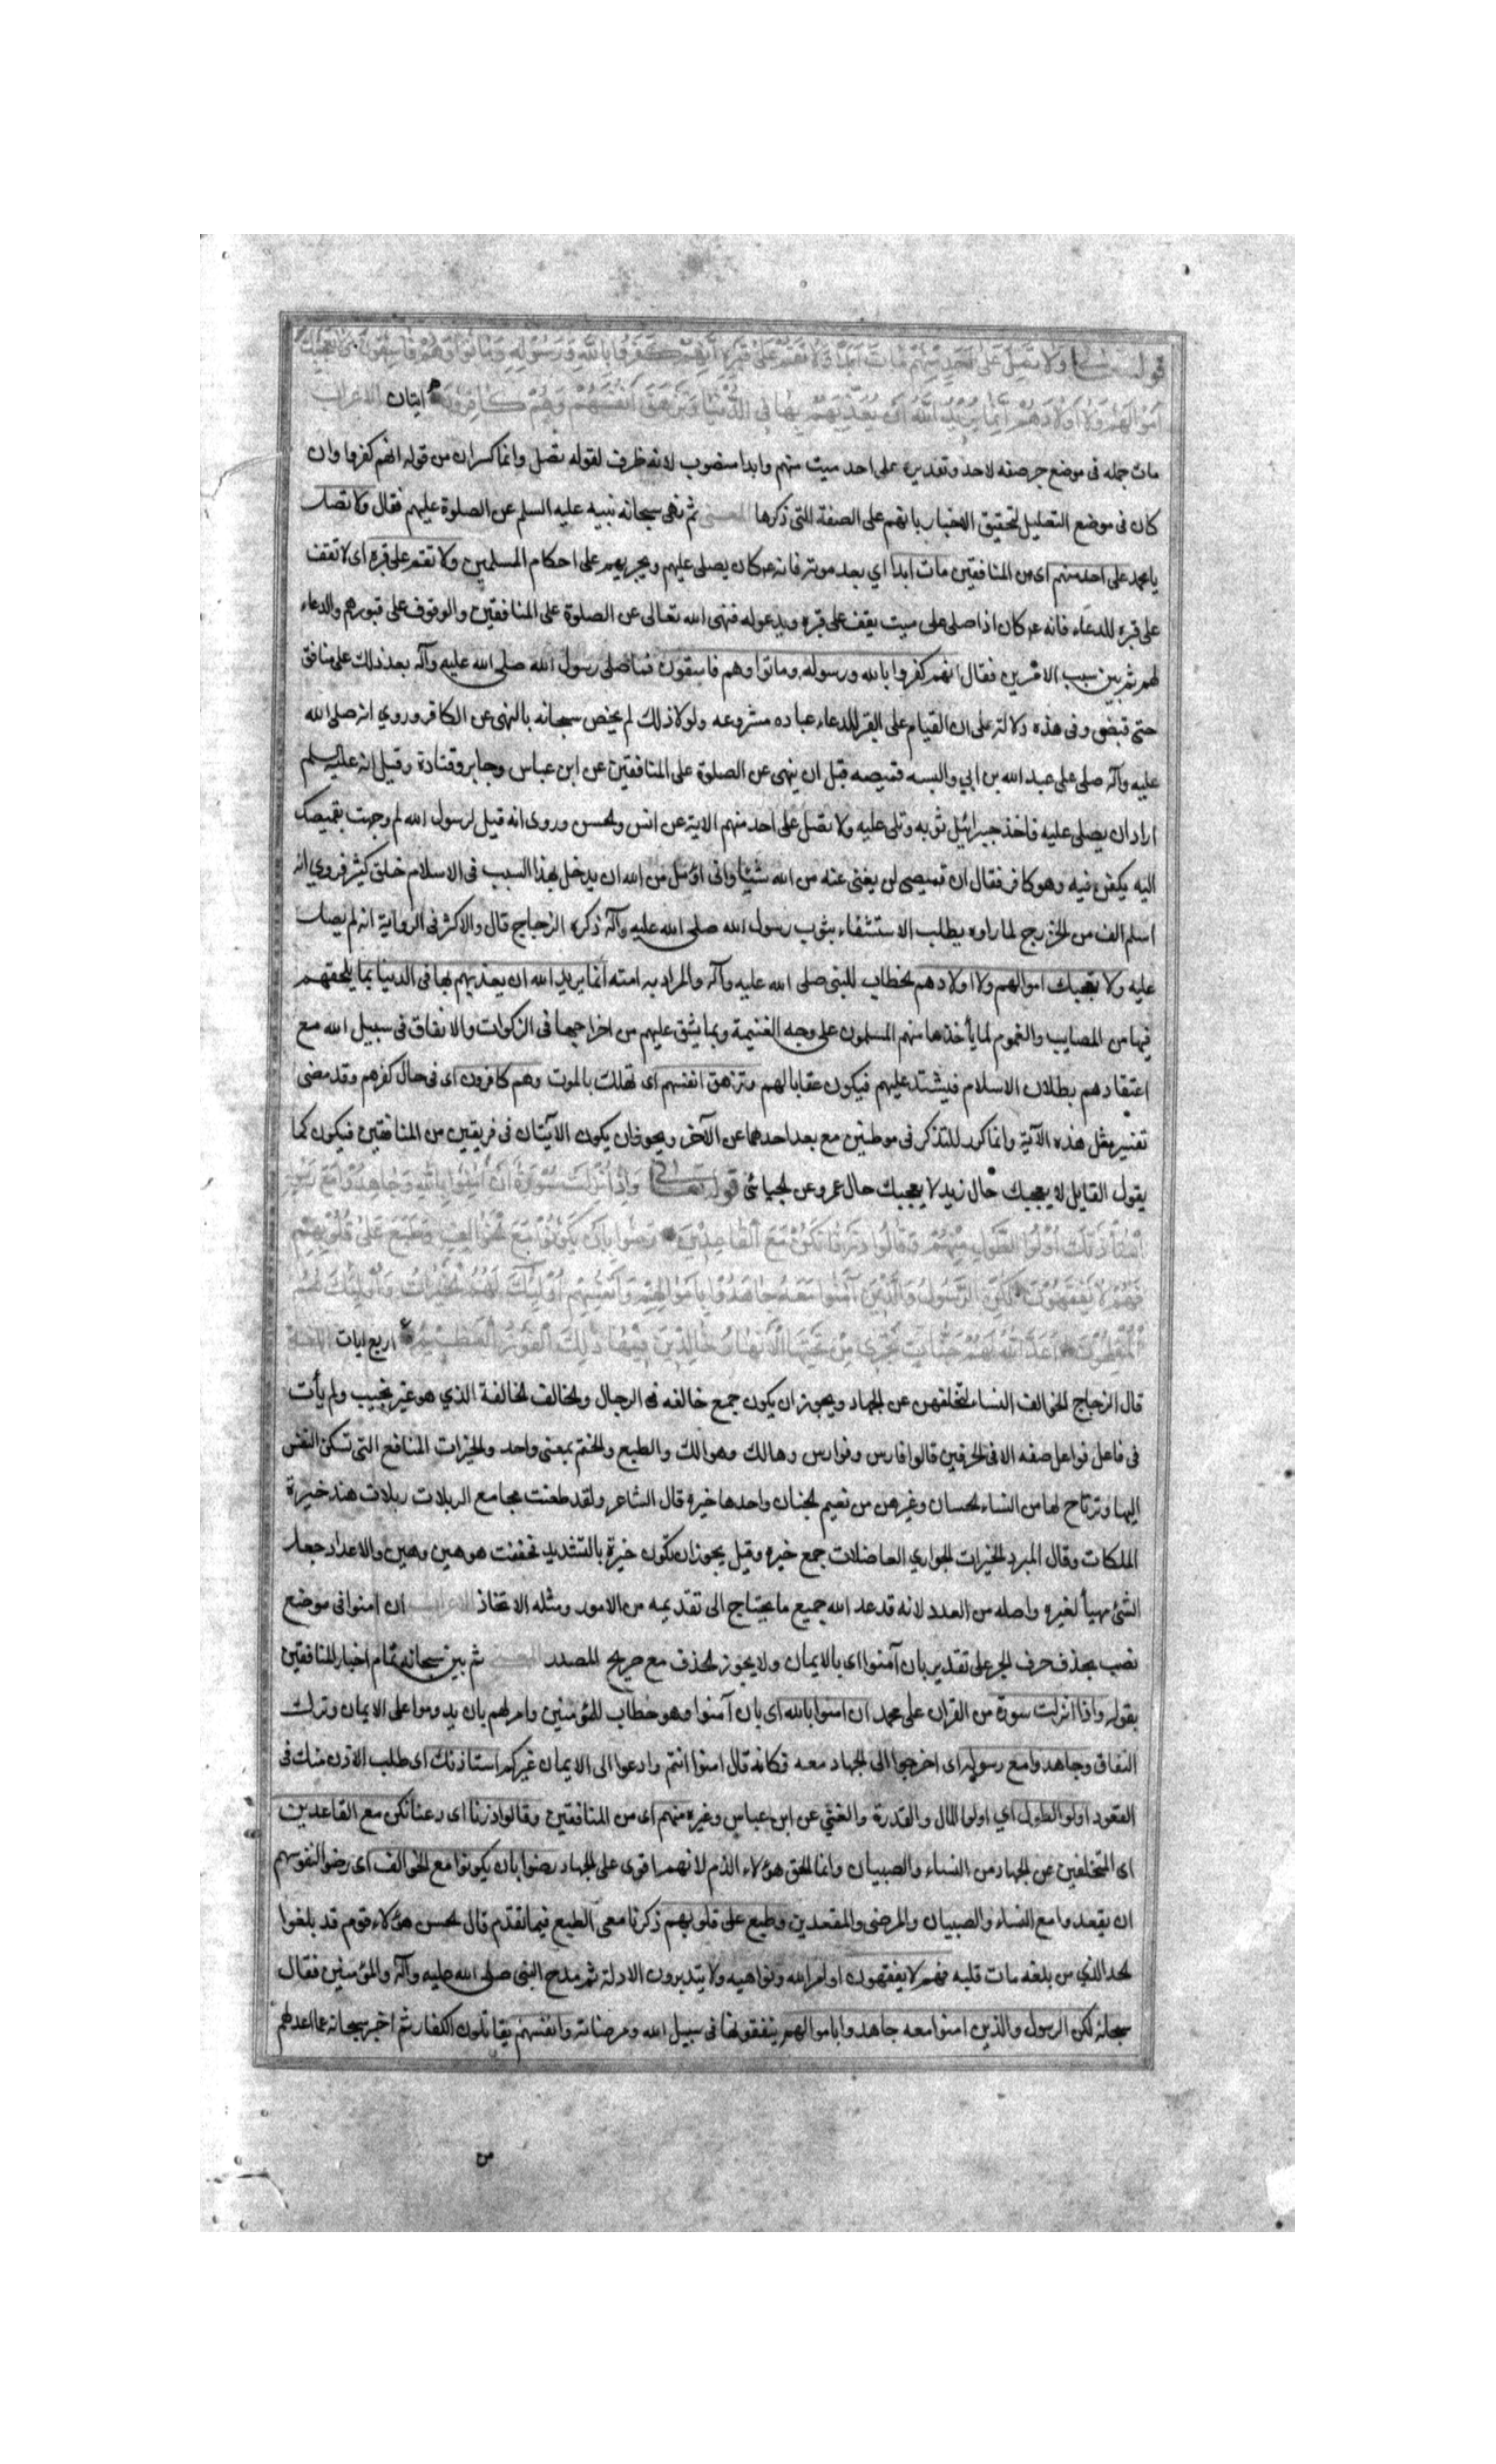 قوله تعالى وَلَا تُصَلِّ عَلَى أَحَدٍ مِنْهُمْ مَاتَ أَبَدًا وَلَا تَقُمْ عَلَى قَبْرِهِ إِنَّهُمْ كَفَرُوا بِاللَّهِ وَرَسُولِهِ وَمَاتُوا وَهُمْ فَاسِقُونَ وَلَا تُعْجِبْكَ
أَمْوَالُهُمْ وَلَا أَوْلَادُهُمْ إِنَّمَا يُرِيدُ اللَّهُ أَنْ يُعَذِّبَهُمْ بِهَا فِي الدُّنْيَا وَتَزْهَقَ أَنْفُسُهُمْ وَهُمْ كَافِرُونَ ايتان الاعراب
مات جمله فى موضع جر صفه لاحد وتقديره على احد ميت منهم وابدا منصوب لانه ظرف لقوله تصل وانما كسر ان من قوله انهم كفروا وان
كان فى موضع التعليل لتحقيق الاخبار بانهم على الصفة التى ذكرها المعنى ثم نهى سبحانه نبيه عليه السلم عن الصلوة عليهم فقال ولا تصل
يا محمد على احد منهم اى من المنافقين مات ابدا اي بعد موته فانه ع كان يصلى عليهم ويجريهم على احكام المسلمين ولا تقم على قبره اى لا تقف
على قبره للدعاء فانه ع كان اذا صلى على ميت يقف على قبره ويدعو له فنهى الله تعالى عن الصلوة على المنافقين والوقوف على قبورهم والدعاء
لهم ثم بين سبب الامرين فقال انهم كفروا بالله ورسوله وماتوا وهم فاسقون فما صلى رسول الله صلى الله عليه وآله بعد ذلك على منافق
حتى قبض وفى هذه دلالة على ان القيام على القبر للدعاء عباده مشروعه ولولا ذلك لم يخص سبحانه بالنهى عن الكافر وروي انه صلى الله
عليه وآله صلى على عبد الله بن ابي والبسه قميصه قبل ان ينهى عن الصلوة على المنافقين عن ابن عباس وجابر وقتادة وقيل انه عليه السلم
اراد ان يصلى عليه فاخذ جبرائيل بثوبه وتلى عليه ولا تصل على احد منهم الاية عن انس والحسن وروى انه قيل لرسول الله لم وجهت بقميصك
اليه يكفن فيه وهو كافر فقال ان قميصى لن يغنى عنه من الله شيئا وانى اؤمل من الله ان يدخل بهذا السبب فى الاسلام خلق كثير فروي انه
اسلم الف من الخزرج لما راوه يطلب الاستشفاء بثوب رسول الله صلى الله عليه وآله ذكره الزجاج قال والاكثر فى الرواية انه لم يصل
عليه ولا تعجبك اموالهم ولا اولادهم الخطاب للنبى صلى الله عليه وآله والمراد به امته انما يريد الله ان يعذبهم بها فى الدنيا بما يلحقهم
فيها من المصايب والغموم لما يأخذها منهم المسلمون على وجه الغنيمة وبما يشق عليهم من اخراجها فى الزكوات والانفاق فى سبيل الله مع
اعتقادهم بطلان الاسلام فيشتد عليهم فيكون عقابا لهم وتزهق انفسهم اى تهلك بالموت وهم كافرون اى فى حال كفرهم وقد مضى
تفسير مثل هذه الآية وانما كرر للتذكر فى موطنين مع بعد احدهما عن الآخر ويجوز ان يكون الآيتان فى فريقين من المنافقين فيكون كما
يقول القايل لا يعجبك حال زيد لا يعجبك حال عمرو عن الجبائى قوله تعالى وَإِذَا أُنْزِلَتْ سُورَةٌ أَنْ آمِنُوا بِاللَّهِ وَجَاهِدُوا مَعَ رَسُولِهِ
اسْتَأْذَنَكَ أُولُوا الطَّوْلِ مِنْهُمْ وَقَالُوا ذَرْنَا نَكُنْ مَعَ الْقَاعِدِينَ رَضُوا بِأَنْ يَكُونُوا مَعَ الْخَوَالِفِ وَطُبِعَ عَلَى قُلُوبِهِمْ
فَهُمْ لَا يَفْقَهُونَ لَكِنِ الرَّسُولُ وَالَّذِينَ آمَنُوا مَعَهُ جَاهَدُوا بِأَمْوَالِهِمْ وَأَنْفُسِهِمْ أُولَئِكَ لَهُمُ الْخَيْرَاتُ وَأُولَئِكَ هُمُ
الْمُفْلِحُونَ أَعَدَّ اللَّهُ لَهُمْ جَنَّاتٍ تَجْرِي مِنْ تَحْتِهَا الْأَنْهَارُ خَالِدِينَ فِيهَا ذَلِكَ الْفَوْزُ الْعَظِيمُ اربع ايات اللغة
قال الزجاج الخوالف النساء لتخلفهن عن الجهاد ويجوز ان يكون جمع خالفه فى الرجال والخالف الخالفة الذي هو غير نجيب ولم يأت
فى فاعل فواعل صفه الا فى الحرفين قالوا فارس وفوارس وهالك وهوالك والطبع والختم بمعنى واحد والخيرات المنافع التى تسكن النفس
اليها وترتاح لها من النساء الحسان وغيرهن من نعيم الجنان واحدها خيره قال الشاعر ولقد طعنت مجامع الربلات ربلات هند خيرة
الملكات وقال المبرد الخيرات الجواري الفاضلات جمع خيره وقيل يجوز ان تكون خيرة بالتشديد تخففت هو هين وهين والاعداد جعل
الشئ مهيأ لغيره واصله من العدد لانه قد عد الله جميع ما يحتاج الى تقديمه من الامور ومثله الاتخاذ الاعراب ان امنوا فى موضع
نصب بحذف حرف الجر على تقدير بان آمنوا اى بالايمان ولا يجوز الحذف مع صريح المصدر المعنى ثم بين سبحانه تمام اخبار المنافقين
بقوله واذا انزلت سورة من القران على محمد ان امنوا بالله اى بان آمنوا وهو خطاب للمؤمنين وامر لهم بان يدوموا على الايمان وترك
النفاق وجاهدوا مع رسوله اى اخرجوا الى الجهاد معه فكانه قال امنوا انتم وادعوا الى الايمان غيركم استاذنك اى طلب الاذن منك فى
القعود اولوا الطول اي اولوا المال والقدرة والغنى عن ابن عباس وغيره منهم اى من المنافقين وقالوا ذرنا اى دعنا نكن مع القاعدين
اى المتخلفين عن الجهاد من النساء والصبيان وانما الحق هؤلاء الذم لانهم اقوى على الجهاد رضوا بان يكونوا مع الخوالف اى رضوا لنفوسهم
ان يقعدوا مع النساء والصبيان والمرضى والمقعدين وطبع على قلوبهم ذكرنا معى الطبع فيما تقدم قال الحسن هؤلاء قوم قد بلغوا
الحد الذي من بلغه مات قلبه فهم لا يفقهون اوامر الله ونواهيه ولا يتدبرون الادلة ثم مدح النبى صلى الله عليه وآله والمؤمنين فقال
سبحانه لكن الرسول والذين امنوا معه جاهدوا باموالهم ينفقونها فى سبيل الله ومرضاته وانفسهم يقاتلون الكفار ثم اخبر سبحانه عما اعد لهم
من